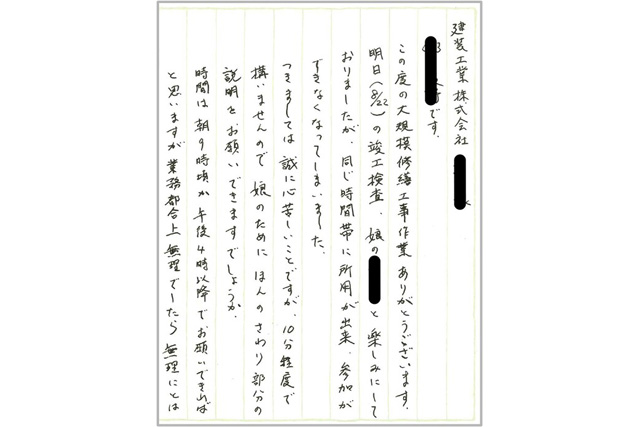 建装工業株式会社
です。
この度の大規模修繕工事作業ありがとうございます。
明日(8/22)の竣工検査、娘の と楽しみにして
おりましたが、同じ時間帯に所用が出来、参加が
できなくなってしまいました。
つきましては誠に心苦しいことですが、10分程度で
構いませんので娘のためにほんのさわり部分の
説明をお願いできますでしょうか。
時間は朝9時頃か午後4時以降でお願いできれば
と思いますが業務都合上無理でしたら無理にとは